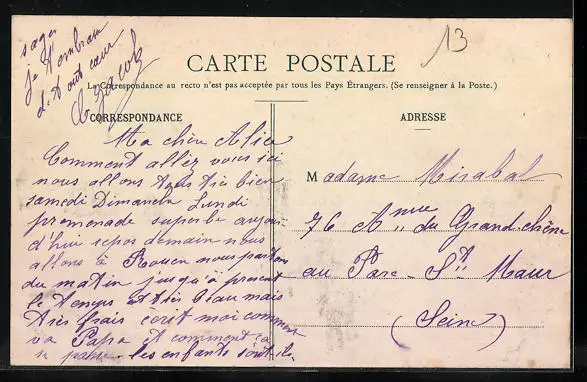 sages
je t'embrasse
de tout cœur
13
CARTE POSTALE
La Correspondance au recto n'est pas acceptée par tous les Pays Étrangers. (Se renseigner à la Poste.)
CORRESPONDANCE
Ma chère Alice
Comment allez vous ici
nous allons tous très bien
samedi Dimanche Lundi
promenade superbe aujour
d'hui repos demain nous
allons à Rouen nous partons
du matin jusqu'à présent
le temps est très beau mais
très frais écrit moi comment
va Papa et comment ça
se passe les enfants sont ils
ADRESSE
Madame Mirabal
76 Anue du Grand-chêne
au Parc-St Maur
(Seine)